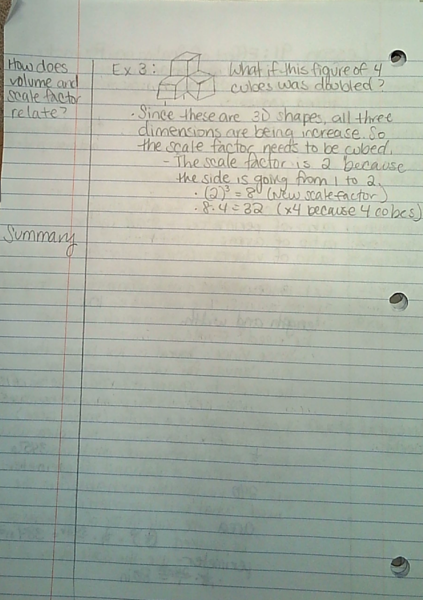 How does
volume and
scale factor
relate?
Ex 3:
What if this figure of 4
cubes was doubled?
• Since these are 3D shapes, all three
dimensions are being increase. So
the scale factor needs to be cubed.
- The scale factor is 2 because
the side is going from 1 to 2.
• (2)³ = 8 (New scale factor)
• 8·4 = 32 (x4 because 4 cubes)
Summary